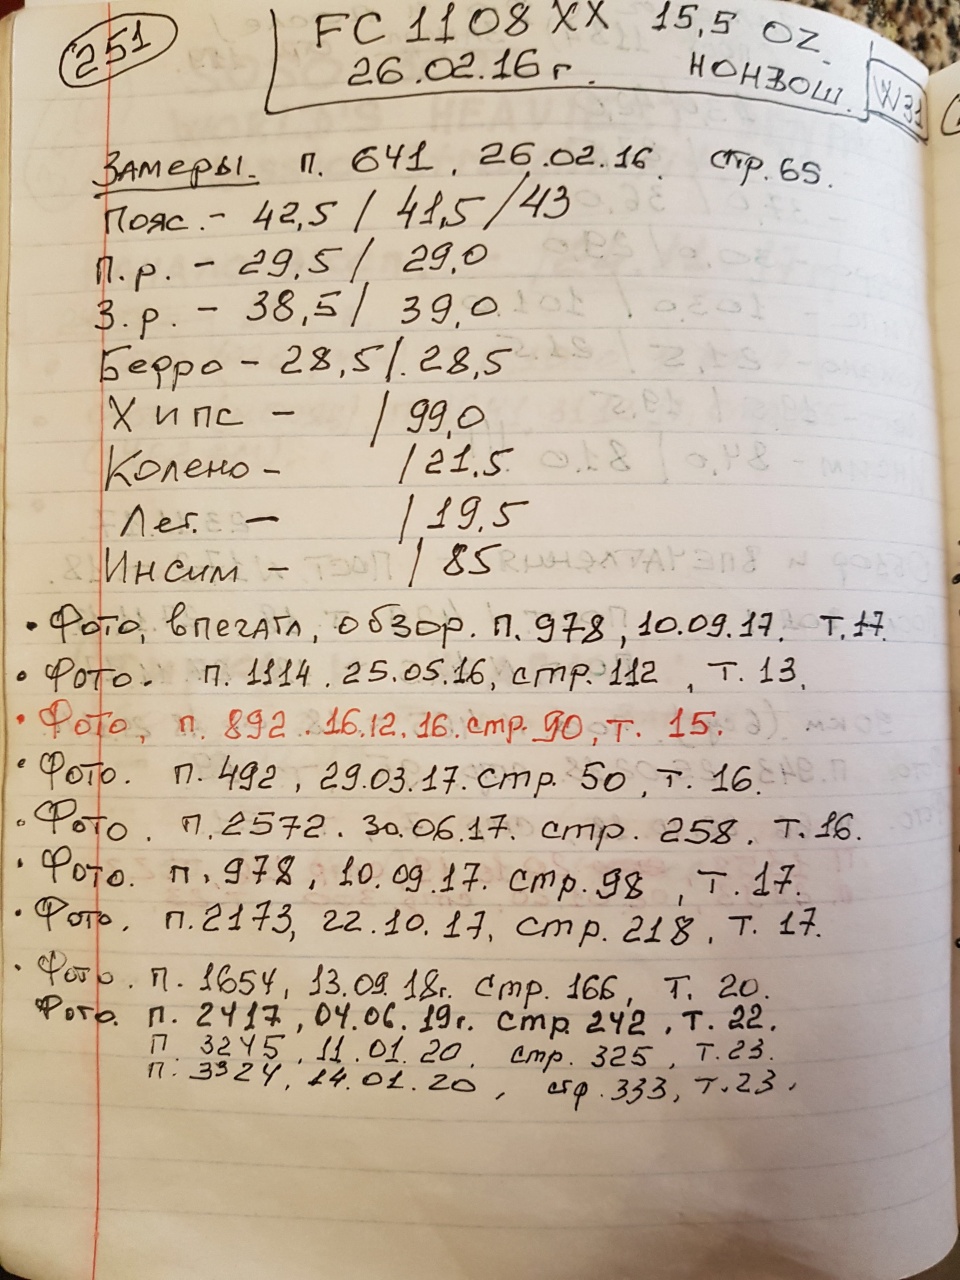 251
FC 1108 XX 15,5 OZ.
26.02.16г. НОНВОШ.
W31
Замеры. п. 641, 26.02.16. стр. 65.
Пояс. - 42,5 / 41,5 / 43
П.р. - 29,5 / 29,0
З.р. - 38,5 / 39,0
Бедро - 28,5 /. 28,5
Хипс - / 99,0
Колено - / 21.5
Лег. - / 19,5
Инсим - / 85
• Фото, впечатл, обзор. п. 978, 10.09.17. Т.17.
• Фото. п. 1114. 25.05.16, стр. 112, т. 13.
• Фото, п. 892. 16.12.16. стр. 90, т. 15.
• Фото. п. 492, 29.03.17. стр. 50, т. 16.
• Фото. п. 2572. 30.06.17. стр. 258. т. 16.
• Фото. п. 978, 10.09.17. стр. 98, т. 17.
• Фото. п. 2173, 22.10.17, стр. 218, т. 17.
• Фото. п. 1654, 13.09.18г. стр. 166, т. 20.
Фото. п. 2417, 04.06.19г. стр. 242, т. 22.
П. 3245, 11.01.20, стр. 325, т. 23.
П. 3324, 14.01.20, стр. 333, т. 23.